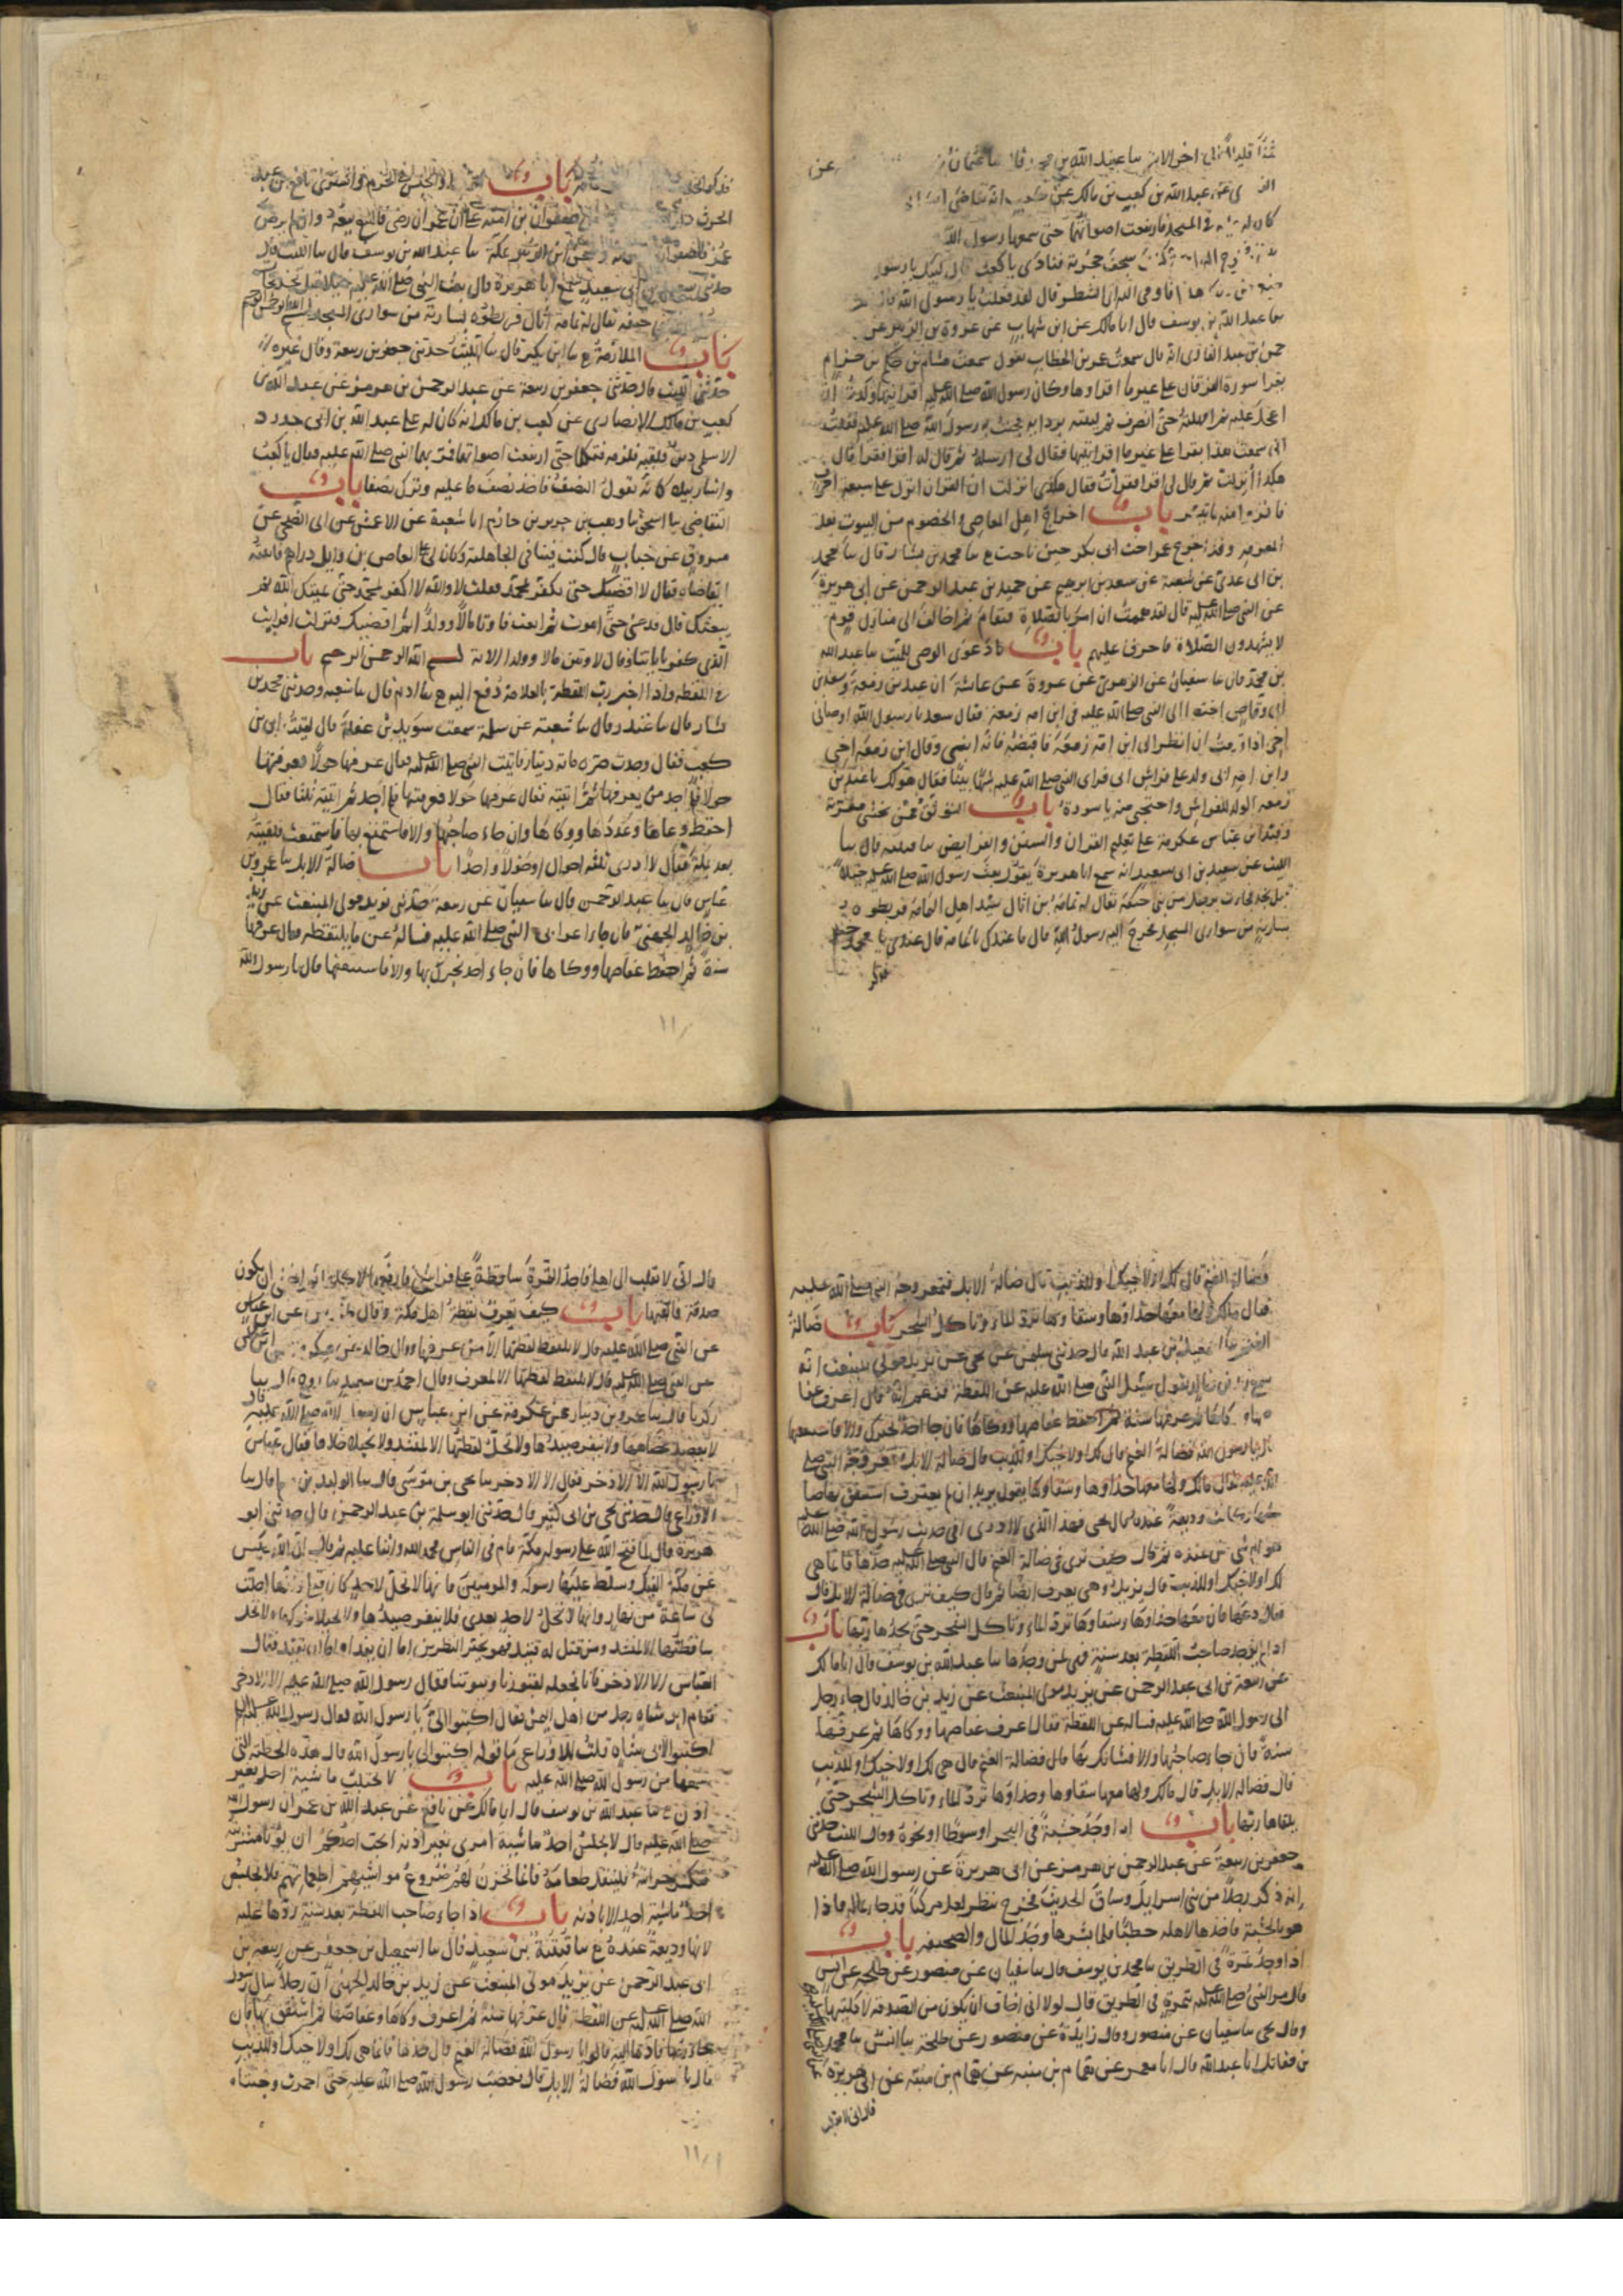 ثمنا قليلا الاية سا عبد الله بن محمد سا عثمان بن عن
عن عبد الله بن كعب بن مالك عن كعب انه تقاضى ابن ابى
كان له عليه فى المسجد فارتفعت اصواتهما حتى سمعها رسول الله
سجف حجرته فنادى يا كعب قال لبيك يا رسول
فاومى اليه اى الشطر قال لقد فعلت يا رسول الله قال
سا عبد الله بن يوسف قال انا مالك عن ابن شهاب عن عروة بن الزبير عن
بن عبد القارى انه قال سمعت عمر بن الخطاب يقول سمعت هشام بن حكيم بن حزام
يقرا سورة الفرقان على غير ما اقروها وكان رسول الله صلى الله عليه اقرانيها وكدت ان
اعجل عليه ثم امهلته حتى انصرف ثم لببته بردايه فجئت به رسول الله صلى الله عليه فقلت
انى سمعت هذا يقرا على غير ما اقراتنيها فقال لى ارسله ثم قال له اقرا فقرا قال
هكذا انزلت ثم قال لى اقرا فقرات فقال هكذى انزلت ان القران انزل على سبعة احرف
فاقروا منه ما تيسر باب اخراج اهل المعاصى والخصوم من البيوت بعد
المعرفة وقد اخرج عمر اخت ابى بكر حين ناحت ع سا محمد بن بشار قال سا محمد
بن ابى عدى عن شعبة عن سعد بن ابرهيم عن حميد بن عبد الرحمن عن ابى هريرة
عن النبى صلى الله عليه قال لقد هممت ان امر بالصلاة فتقام ثم اخالف الى منازل قوم
لا يشهدون الصلاة فاحرق عليهم باب دعوى الوصى للميت سا عبد الله
بن محمد قال سا سفيان عن الزهرى عن عروة عن عائشة ان عبد بن زمعة وسعد بن
ابى وقاص اختصما الى النبى صلى الله عليه فى ابن امة زمعة فقال سعد يا رسول الله اوصانى
اخى اذا قدمت ان انظر الى ابن امة زمعة فاقبضه فانه ابنى وقال ابن زمعة اخى
وابن امة ابى ولد على فراش ابى فراى النبى صلى الله عليه شبها بينا فقال هو لك يا عبد بن
زمعة الولد للفراش واحتجبى منه يا سودة باب التوثق ممن تخشى معرته
وقيد ابن عباس عكرمة على تعليم القران والسنن والفرايض سا قتيبة قال سا
الليث عن سعيد بن ابى سعيد انه سمع ابا هريرة يقول بعث رسول الله صلى الله عليه خيلا
قبل نجد فجات برجل من بنى حنيفة يقال له ثمامة بن اثال سيد اهل اليمامة فربطوه
بسارية من سوارى المسجد فخرج اليه رسول الله قال ما عندك يا ثمامة قال عندى يا محمد خير
فذكر
فذكر الحديث باب الربط والحبس فى الحرم واشترى نافع بن عبد
الحرث دار صفوان بن امية على ان عمر ان رضى فالبيع بيعه وان لم يرض
عمر فلصفوان وسجن ابن الزبير بمكة سا عبد الله بن يوسف قال سا الليث قال
حدثنى سعيد بن ابى سعيد سمع ابا هريرة قال بعث النبى صلى الله عليه خيلا قبل نجد فجات
حنيفة يقال له ثمامة بن اثال فربطوه بسارية من سوارى المسجد بسم الله الرحمن الرحيم
باب الملازمة ع سا ابن بكير قال سا الليث حدثنى جعفر بن ربيعة وقال غيره
حدثنى الليث قال حدثنى جعفر بن ربيعة عن عبد الرحمن بن هرمز عن عبد الله بن
كعب بن مالك الانصارى عن كعب بن مالك انه كان له على عبد الله بن ابى حدرد
الاسلمى دين فلقيه فلزمه فتكلما حتى ارتفعت اصواتهما فمر بهما النبى صلى الله عليه فقال يا كعب
واشار بيده كانه يقول النصف فاخذ نصف ما عليه وترك نصفا باب
التقاضى سا اسحق سا وهب بن جرير بن حازم انا شعبة عن الاعمش عن ابى الضحى عن
مسروق عن خباب قال كنت قينا فى الجاهلية وكان لى على العاصى بن وايل دراهم فاتيته
اتقاضاه فقال لا اقضيك حتى تكفر بمحمد فقلت لا والله لا اكفر بمحمد حتى يميتك الله ثم
يبعثك قال فدعنى حتى اموت ثم ابعث فاوتا مالا وولدا ثم اقضيك فنزلت افرايت
الذى كفر باياتنا وقال لاوتين مالا وولدا الاية بسم الله الرحمن الرحيم باب
فى اللقطة واذا اخبر رب اللقطة بالعلامة دفع اليه ع سا ادم قال سا شعبة وحدثنى محمد بن
بشار قال سا غندر قال سا شعبة عن سلمة سمعت سويد بن غفلة قال لقيت ابى بن
كعب فقال وجدت صرة مائة دينار فاتيت النبى صلى الله عليه فقال عرفها حولا فعرفتها
حولا فلم اجد من يعرفها ثم اتيته فقال عرفها حولا فعرفتها فلم اجد ثم اتيته ثلثا فقال
احفظ وعاها وعددها ووكاها فان جاء صاحبها والا فاستمتع بها فاستمتعت فلقيته
بعد بمكة فقال لا ادرى ثلثة احوال او حولا واحدا باب ضالة الابل سا عمرو بن
عباس قال سا عبد الرحمن قال سا سفيان عن ربيعة حدثنى يزيد مولى المنبعث عن زيد
بن خالد الجهنى قال جاء اعرابى النبى صلى الله عليه فساله عن ما يلتقطه فقال عرفها
سنة ثم احفظ عفاصها ووكاها فان جاء احد يخبرك بها والا فاستنفقها قال يا رسول الله
١١
فضالة الغنم قال لك او لاخيك او للذيب قال ضالة الابل فتمعر وجه النبى صلى الله عليه
فقال مالك ولها معها حذاوها وسقاوها ترد الماء وتاكل الشجر باب ضالة
الغنم سا اسمعيل بن عبد الله قال حدثنى سليمن عن يحيى عن يزيد مولى المنبعث انه
سمع زيد بن خالد يقول سئل النبى صلى الله عليه عن اللقطة فزعم انه قال اعرف عفا
صها ووكاها ثم عرفها سنة ثم احفظ عفاصها ووكاها فان جا احد يخبرك والا فاستنفقها
قال يا رسول الله فضالة الغنم قال لك او لاخيك او للذيب قال ضالة الابل فمعر وجه النبى صلى
الله عليه فقال مالك ولها معها حذاوها وسقاوها يقول يزيد ان لم يعترف استنفق بها صا
حبها وكانت وديعة عنده قال يحيى فهذا الذى لا ادرى افى حديث رسول الله صلى الله عليه
هو ام شى من عنده ثم قال كيف ترى فى ضالة الغنم قال النبى صلى الله عليه خذها فانما هى
لك او لاخيك او للذيب قال يزيد وهى يعرف ايضا ثم قال كيف ترى فى ضالة الابل قال
فقال دعها فان معها حذاوها وسقاوها ترد الماء وتاكل الشجر حتى يجدها ربها باب
اذا لم يوجد صاحب اللقطة بعد سنة فهى لمن وجدها سا عبد الله بن يوسف قال انا مالك
عن ربيعة بن ابى عبد الرحمن عن يزيد مولى المنبعث عن زيد بن خالد قال جاء رجل
الى رسول الله صلى الله عليه فساله عن اللقطة فقال اعرف عفاصها ووكاها ثم عرفها
سنة فان جاء صاحبها والا فشانك بها قال فضالة الغنم قال هى لك او لاخيك او للذيب
قال فضالة الابل قال مالك ولها معها سقاوها وحذاوها ترد الماء وتاكل الشجر حتى
يلقاها ربها باب اذا وجد خشبة فى البحر او سوطا او نحوه وقال الليث حدثنى
جعفر بن ربيعة عن عبد الرحمن بن هرمز عن ابى هريرة عن رسول الله صلى الله عليه
انه ذكر رجلا من بنى اسرايل وساق الحديث فخرج ينظر لعل مركبا قد جاء بماله فاذا
هو بالخشبة فاخذها لاهله حطبا فلما نشرها وجد المال والصحيفة باب
اذا وجد تمرة فى الطريق سا محمد بن يوسف قال سا سفيان عن منصور عن طلحة عن انس
قال مر النبى صلى الله عليه بتمرة فى الطريق قال لولا انى اخاف ان يكون من الصدقة لاكلتها
وقال يحيى سا سفيان عن منصور وقال زايدة عن منصور عن طلحة سا انس سا محمد
بن مقاتل انا عبد الله قال انا معمر عن همام بن منبه عن همام بن منبه عن ابى هريرة
قال انى لانقلب
قال انى لانقلب الى اهلى فاجد التمرة ساقطة على فراشى فارفعها لاكلها ثم اخشى ان يكون
صدقة فالقيها باب كيف تعرف لقطة اهل مكة وقال طاوس عن ابن عباس
عن النبى صلى الله عليه قال لا يلتقط لقطتها الا من عرفها وقال خالد عن عكرمة عن ابن عباس
عن النبى صلى الله عليه قال لا يلتقط لقطتها الا لمعرف وقال احمد بن سعيد سا روح قال سا
زكريا قال سا عمرو بن دينار عن عكرمة عن ابن عباس ان رسول الله صلى الله عليه قال
لا يعضد عضاهها ولا ينفر صيدها ولا تحل لقطتها الا لمنشد ولا يختلى خلاها فقال عباس
يا رسول الله الا الاذخر فقال الا الاذخر سا يحيى بن موسى قال سا الوليد بن مسلم قال سا
الاوزاعى قال حدثنى يحيى بن ابى كثير قال حدثنى ابو سلمة بن عبد الرحمن قال حدثنى ابو
هريرة قال لما فتح الله على رسوله مكة قام فى الناس فحمد الله واثنا عليه ثم قال ان الله حبس
عن مكة الفيل وسلط عليها رسوله والمومنين فانها لا تحل لاحد كان قبلى وانها احلت
لى ساعة من نهار وانها لا تحل لاحد بعدى فلا ينفر صيدها ولا يختلى شوكها ولا تحل
ساقطتها الا لمنشد ومن قتل له قتيل فهو بخير النظرين اما ان يفدا واما ان يقيد فقال
العباس الا الاذخر فانا نجعله لقبورنا وبيوتنا فقال رسول الله صلى الله عليه الا الاذخر
فقام ابو شاه رجل من اهل اليمن فقال اكتبوا لى يا رسول الله فقال رسول الله صلى الله عليه
اكتبوا لابى شاه قلت للاوزاعى ما قوله اكتبوا لى يا رسول الله قال هذه الخطبة التى
سمعها من رسول الله صلى الله عليه باب لا تحتلب ماشية احد بغير
اذن ع سا عبد الله بن يوسف قال انا مالك عن نافع عن عبد الله بن عمر ان رسول الله
صلى الله عليه قال لا يحلبن احد ماشية امرى بغير اذنه ايحب احدكم ان توتا مشربته
فتكسر خزانته فينتقل طعامه فانما تخزن لهم ضروع مواشيهم اطعماتهم فلا يحلبن
احد ماشية احد الا باذنه باب اذا جاء صاحب اللقطة بعد سنة ردها عليه
لانها وديعة عنده ع سا قتيبة بن سعيد قال سا اسمعيل بن جعفر عن ربيعة بن
ابى عبد الرحمن عن يزيد مولى المنبعث عن زيد بن خالد الجهنى ان رجلا سال رسول
الله صلى الله عليه عن اللقطة قال عرفها سنة ثم اعرف وكاها وعفاصها ثم استنفق بها فان
جاء ربها فادها اليه قالوا يا رسول الله فضالة الغنم قال خذها فانما هى لك او لاخيك او للذيب
قال يا رسول الله فضالة الابل قال فغضب رسول الله صلى الله عليه حتى احمرت وجنتاه
١١